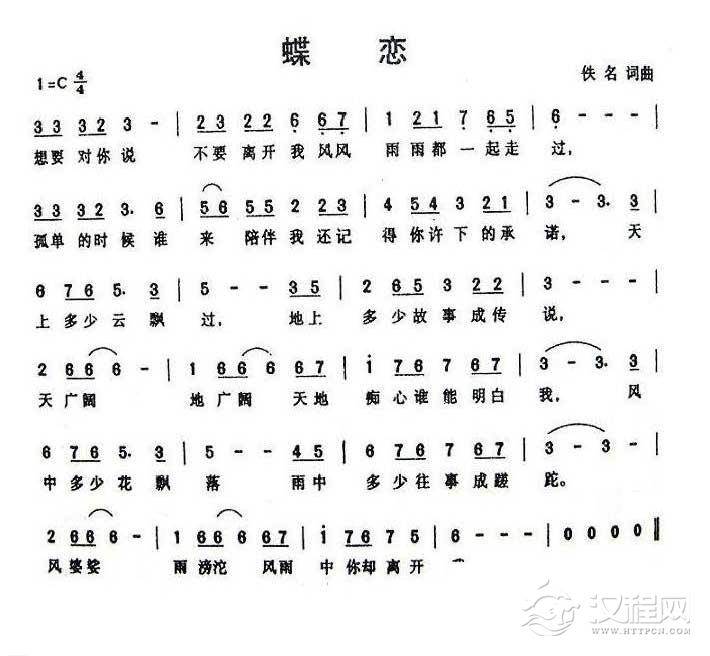 蝶 恋
1=C 4/4
佚名 词曲
3 3 3 2 3 - | 2 3 2 2 6 6 7 | 1 2 1 7 6 5 | 6 - - - |
想要 对你 说 不要 离开 我 风风 雨 雨都 一 起走 过,
3 3 3 2 3. 6 | 5 6 5 6 5 2 2 3 | 4 5 4 3 2 1 | 3 - 3. 3 |
孤单 的时 候 谁 来 陪伴 我 还记 得 你许 下 的承 诺, 天
6 7 6 5. 3 | 5 - - 3 5 | 2 6 5 3 2 2 | 3 - - - |
上 多少 云 飘 过, 地上 多 少故 事 成传 说,
2 6 6 6 - | 1 6 6 6 6 7 | i 7 6 7 6 7 | 3 - 3. 3 |
天 广阔 地 广阔 天地 痴 心谁 能 明白 我, 风
6 7 6 5. 3 | 5 - - 4 5 | 6 7 6 7 6 7 | 3 - - - |
中 多少 花 飘 落 雨中 多 少往 事 成蹉 跎。
2 6 6 6 - | 1 6 6 6 6 7 | i 7 6 7 5 | 6 - - - | 0 0 0 0 ‖
风 婆娑 雨 滂沱 风雨 中 你却 离 开
汉程网
WWW.HTTPCN.COM